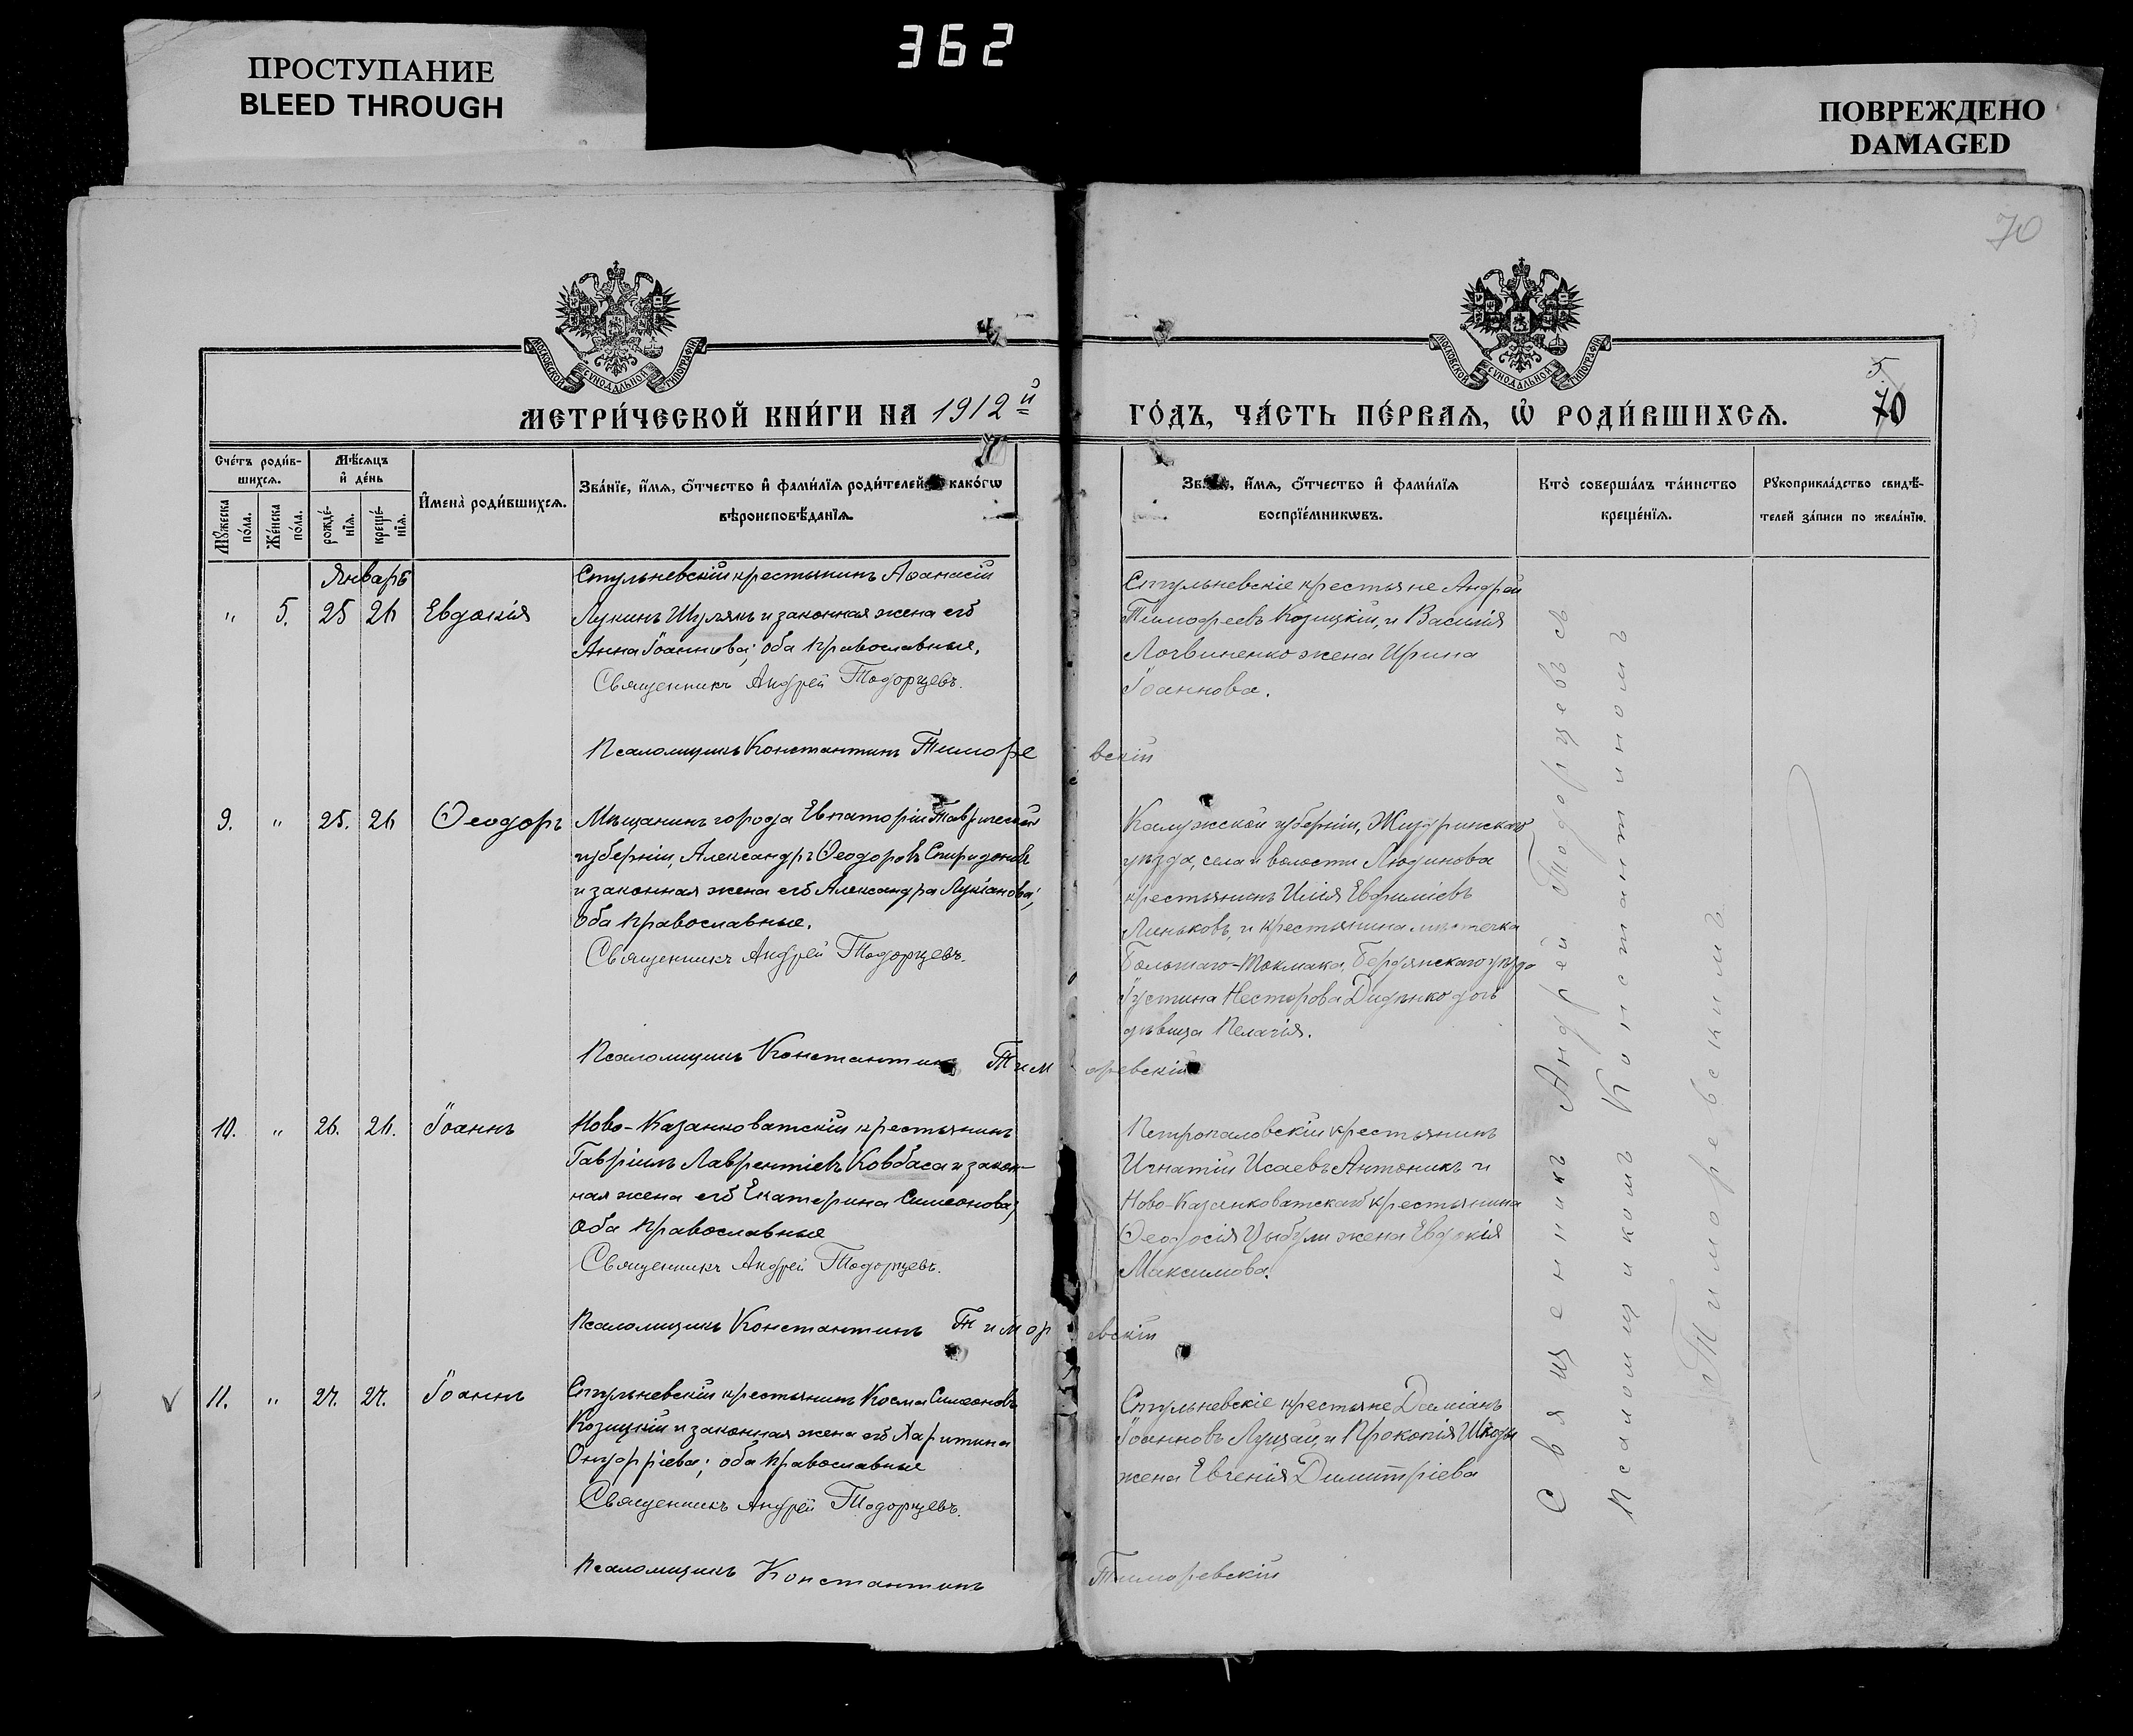 ПРОСТУПАНИЕ
BLEED THROUGH
362
ПОВРЕЖДЕНО
DAMAGED
70
МОСКОВСКОЙ СѴНОДАЛЬНОЙ ТИПОГРАФІИ
МОСКОВСКОЙ СѴНОДАЛЬНОЙ ТИПОГРАФІИ
МЕТРИ́ЧЕСКОЙ КНИ́ГИ НА 1912й
ГО́ДЪ, ЧА́СТЬ ПЕ́РВАЯ, Ѡ РОДИ́ВШИХСЯ.
5
70
Сче́тъ роди́в-
шихся.
Мꙋ́жеска по́ла.
Же́нска по́ла.
Мѣ́сяцъ
и҆ де́нь
рожде́-
нія.
креще́-
нія.
И҆мена̀ роди́вшихся.
Зва́нїе, и҆́мя, о҆́тчество и҆ фами́лїя роди́телей, како́гѡ
вѣроисповѣ́данїя.
Зва́нїе, и҆́мя, о҆́тчество и҆ фами́лїя
воспрїе́мникѡвъ.
Кто̀ соверша́лъ та́инство
креще́нїя.
Рꙋкоприкла́дство свидѣ́-
телей за́писи по жела́нїю.
Январь
" 5. 25 26 Евдокія
Стульневскій крестьянинъ Аѳанасій
Лукинъ Шулякъ и законная жена его
Анна Іоаннова; оба православные.
Священникъ Андрей Тодорцевъ.
Псаломщикъ Константинъ Тиморевскій
Стульневскіе крестьяне Андрей
Тимоѳеевъ Козицкій, и Василія
Логвиненко жена Ирина
Іоаннова.
9. " 25. 26 Ѳеодоръ
Мѣщанинъ города Евпаторіи Таврической
губерніи, Александръ Ѳеодоровъ Спиридоновъ
и законная жена его Александра Лукіанова;
оба православные.
Священникъ Андрей Тодорцевъ.
Псаломщикъ Константинъ Тиморевскій
Калужской губерніи, Жиздринскаго
уѣзда, села и волости Людинова
крестьянинъ Илія Евфиміевъ
Линьковъ, и крестьянина мѣстечка
Большаго-Токмака, Бердянскаго уѣзда
Іустина Несторова Диденко дочь
дѣвица Пелагія.
10. " 26. 26. Іоаннъ
Ново-Казанковатскій крестьянинъ
Гавріилъ Лаврентіевъ Ковбаса и закон-
ная жена его Екатерина Симеонова;
оба православные
Священникъ Андрей Тодорцевъ.
Псаломщикъ Константинъ Тиморевскій
Петропаловскій крестьянинъ
Игнатій Исаевъ Антоникъ и
Ново-Казанковатскаго крестьянина
Ѳеодосія Цыбули жена Евдокія
Максимова.
11. " 27. 27. Іоаннъ
Стульневскій крестьянинъ Косма Симеоновъ
Козицкій и законная жена его Харитина
Онуфріева; оба православные
Священникъ Андрей Тодорцевъ.
Псаломщикъ Константинъ Тиморевскій
Стульневскіе крестьяне Даміанъ
Іоанновъ Луцай, и Прокопія Шкоды
жена Евгенія Димитріева
Священникъ Андрей Тодорцевъ съ
Псаломщикомъ Константиномъ
Тиморевскимъ